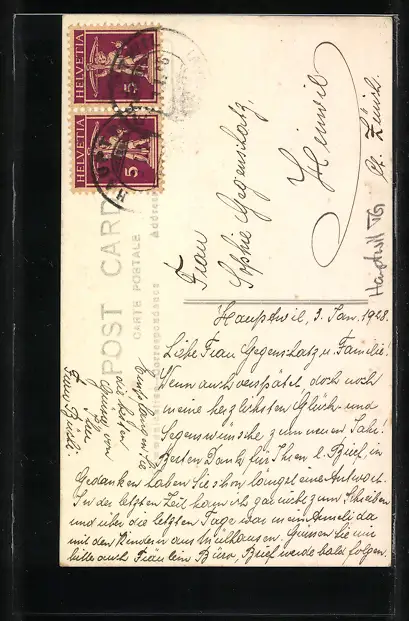 HELVETIA
5
HELVETIA
5
POST CARD
CARTE POSTALE
Correspondance
Address
Frau
Sophie Gegenschatz,
Hinwil
Ct. Zürich.
Hauptwil TG
Hauptwil, 3. Jan. 1928.
Liebe Frau Gegenschatz u. Familie!
Wenn auch verspätet, doch noch
meine herzlichsten Glück- und
Segenswünsche zum neuen Jahr!
Besten Dank für Ihren l. Brief, in
Gedanken haben Sie schon längst eine Antwort.
In der letzten Zeit kam ich gar nicht zum Schreiben
und über die letzten Tage war mein Anneli da
mit den Kindern aus Mülhausen. Grüssen Sie mir
bitte auch Fräulein Büro, Brief werde bald folgen.
die besten
von
Ihre
Frau